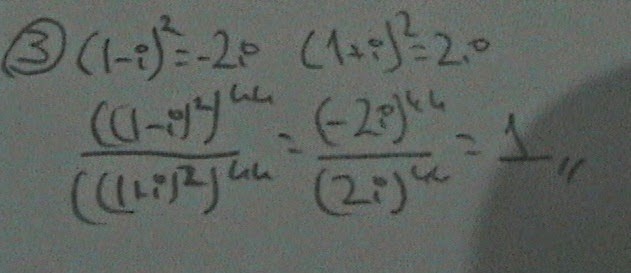 ③ (1-i)²=-2i (1+i)²=2i
((1-i)²)⁴⁴ / ((1+i)²)⁴⁴ = (-2i)⁴⁴ / (2i)⁴⁴ = 1,,